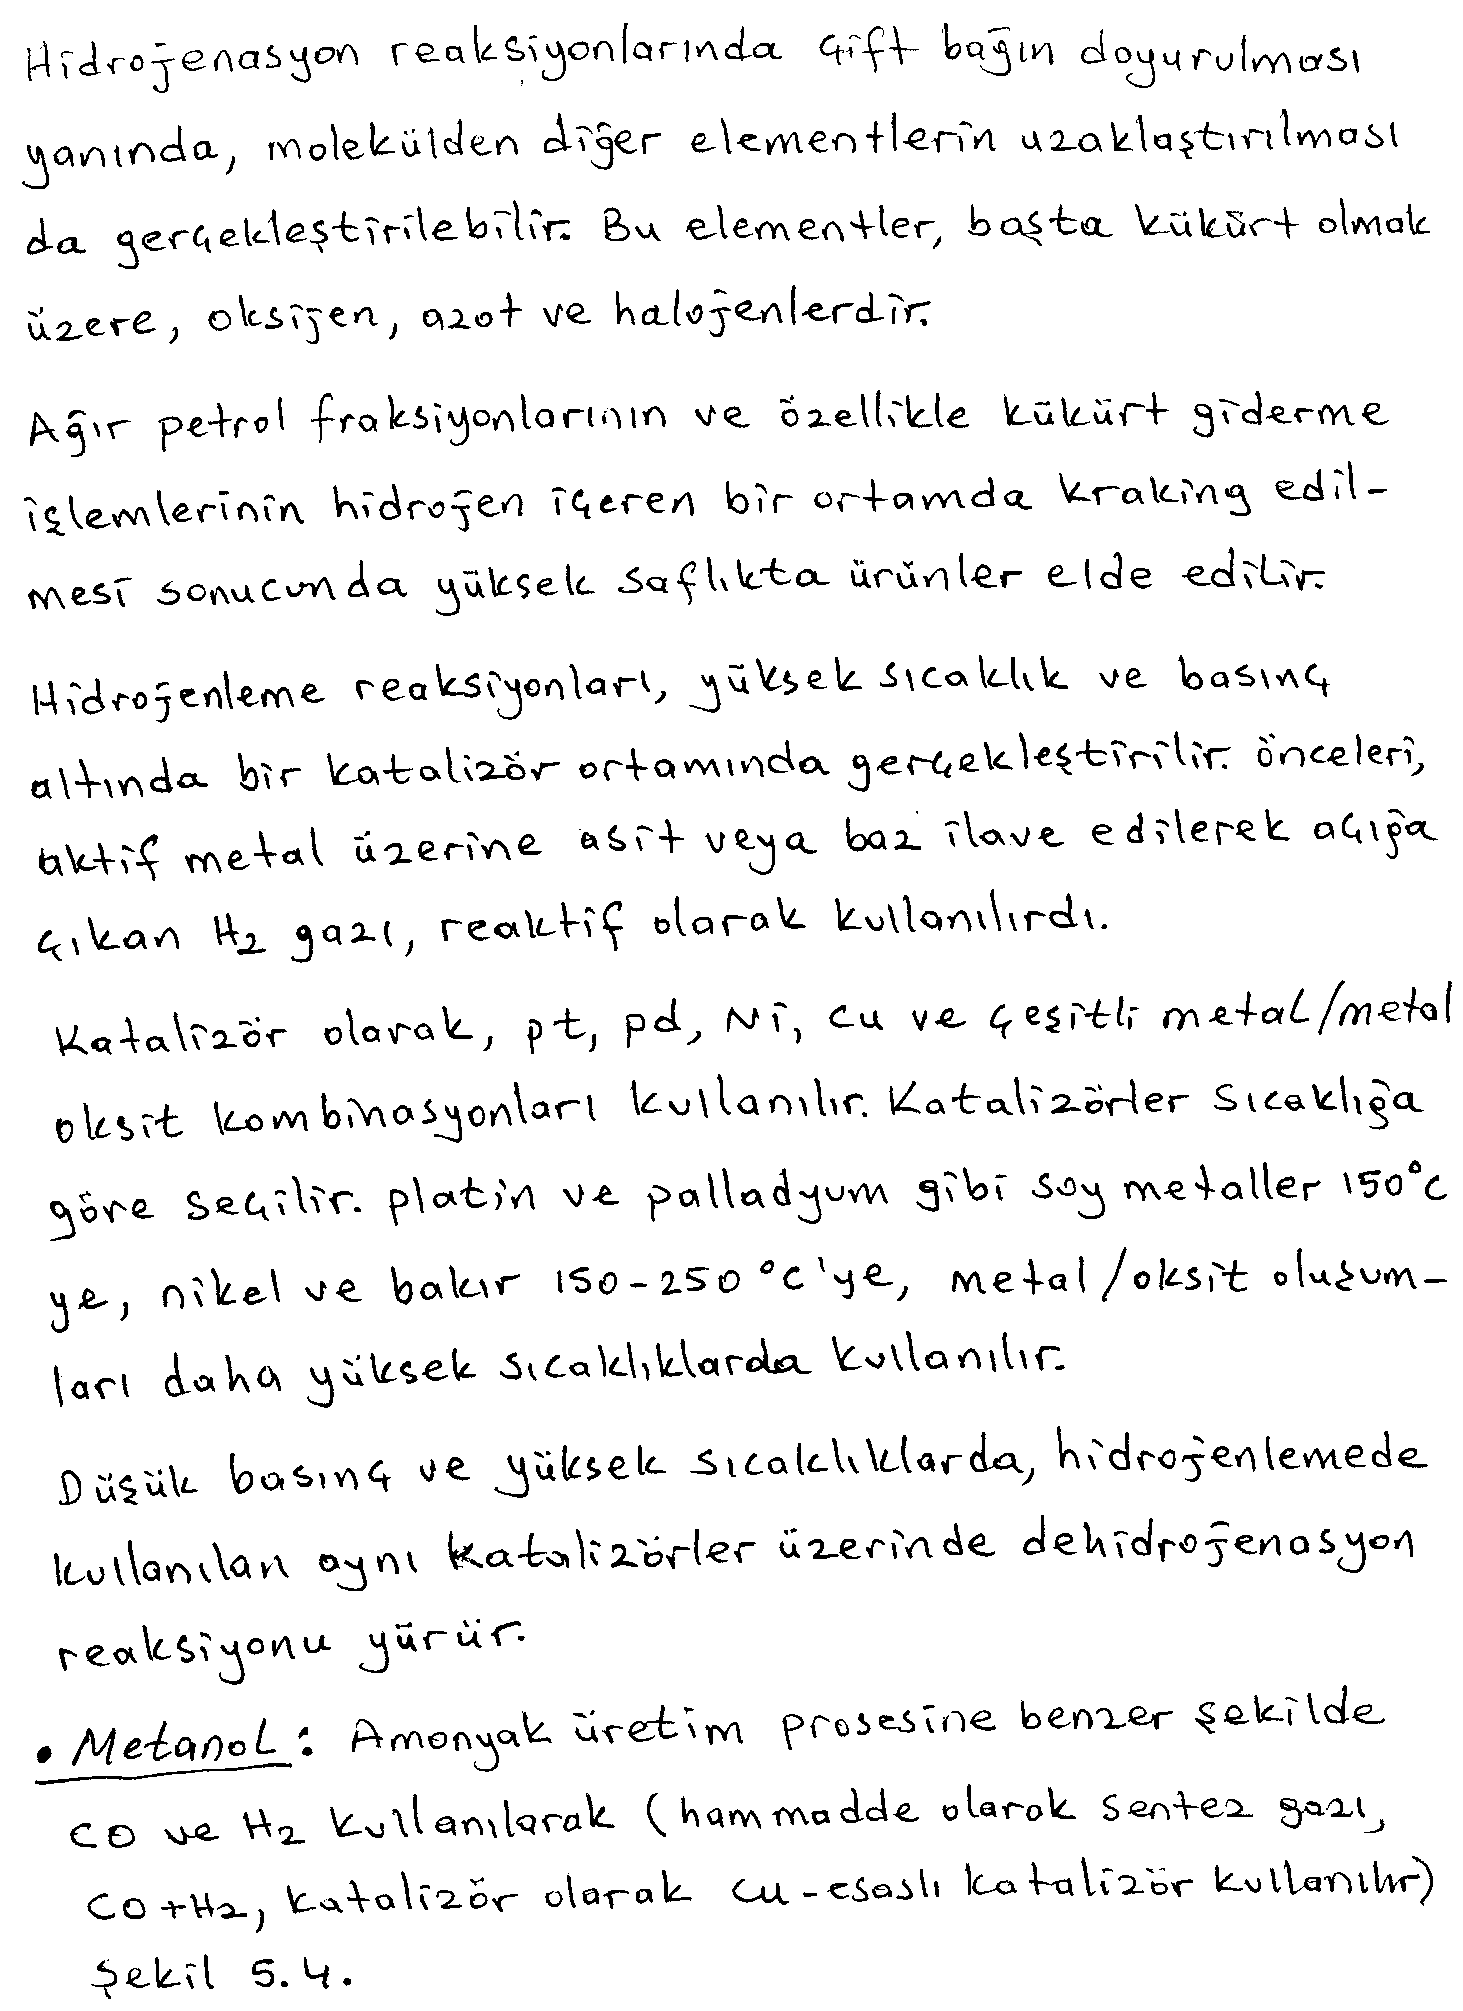 Hidrojenasyon reaksiyonlarında çift bağın doyurulması
yanında, molekülden diğer elementlerin uzaklaştırılması
da gerçekleştirilebilir. Bu elementler, başta kükürt olmak
üzere, oksijen, azot ve halojenlerdir.
Ağır petrol fraksiyonlarının ve özellikle kükürt giderme
işlemlerinin hidrojen içeren bir ortamda kraking edil-
mesi sonucunda yüksek saflıkta ürünler elde edilir.
Hidrojenleme reaksiyonları, yüksek sıcaklık ve basınç
altında bir katalizör ortamında gerçekleştirilir. önceleri,
aktif metal üzerine asit veya baz ilave edilerek açığa
çıkan H2 gazı, reaktif olarak kullanılırdı.
Katalizör olarak, pt, pd, Ni, cu ve çeşitli metal/metal
oksit kombinasyonları kullanılır. Katalizörler sıcaklığa
göre seçilir. platin ve palladyum gibi soy metaller 150°c
ye, nikel ve bakır 150-250 °c'ye, metal/oksit oluşum-
ları daha yüksek sıcaklıklarda kullanılır.
Düşük basınç ve yüksek sıcaklıklarda, hidrojenlemede
kullanılan aynı katalizörler üzerinde dehidrojenasyon
reaksiyonu yürür.
• Metanol: Amonyak üretim prosesine benzer şekilde
CO ve H2 kullanılarak (hammadde olarak sentez gazı,
CO+H2, katalizör olarak cu-esaslı katalizör kullanılır)
Şekil 5.4.